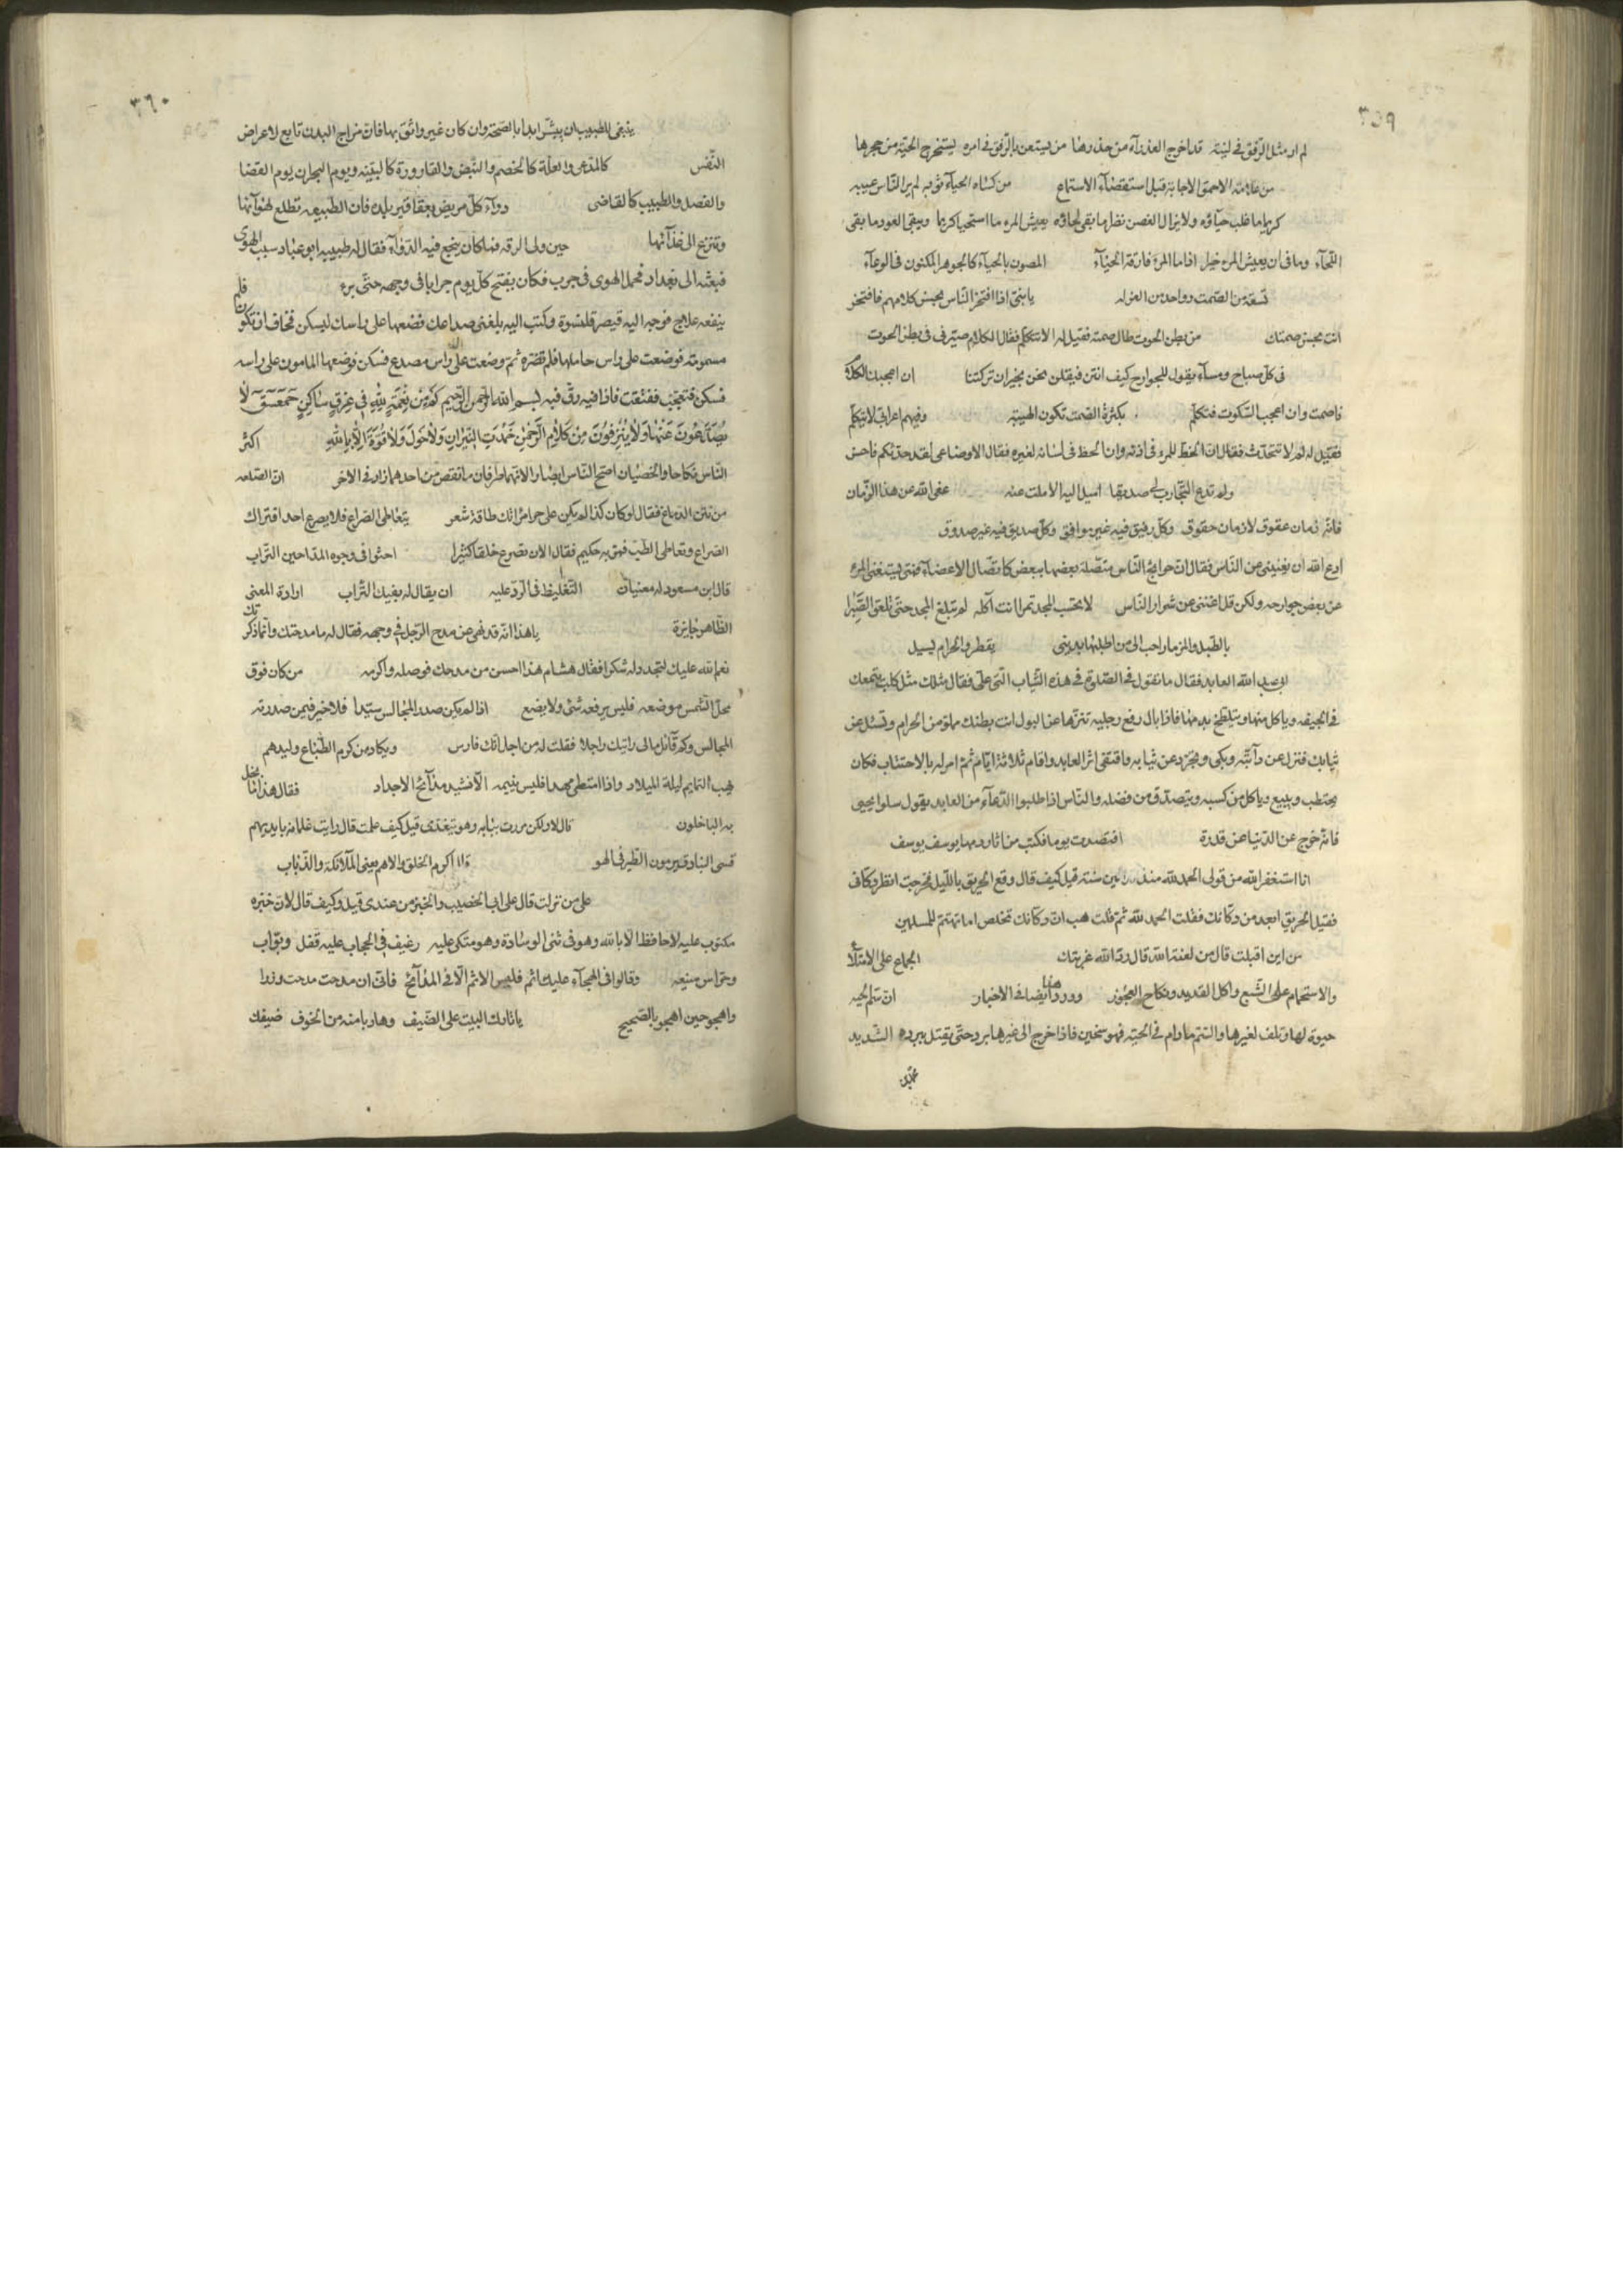 ٣٥٩
لم ار مثل الرفق في لينه قد اخرج العذرآء من خدرها من يستعن بالرفق في امره يستخرج الحيّة من جحرها
من علامة الاحمق الاجابة قبل استقصآء الاستماع من كساه الحيآء ثوبه لم ير النّاس عيبه
كريما ما غلب حيآؤه ولا يزال الغصن نظرا ما بقى لحاؤه يعيش المرء ما استحيا كريما ويبقى العود ما بقى
اللّحآء وما فى ان يعيش المرء خير اذا ما المرء فارقه الحيآء المصون بالحيآء كالجوهر المكنون فى الوعآء
تسعة من الصّمت وواحد من العزله يا بنىّ اذا افتخر النّاس بحسن كلامهم فافتخر
انت بحسن صمتك من بطن الحوت طال صمته فقيل له الا تتكلم فقال الكلام صيّرنى فى بطن الحوت
فى كل صباح ومسآء يقول للجوارح كيف انتن فيقلن نحن بخير ان تركتنا ان اعجبك الكلام
فاصمت وان اعجب السّكوت فتكلّم بكثرة الصّمت تكون الهيبة وفيهم اعرابى لا يتكلّم
فقيل له لم لا تتحدّث فقال انّ الحظّ للمرء فى اذنه وان الحظ فى لسانه لغيره فقال الاوضاعى لقد حدّثكم فاحسن
ولم تدع التّجارب لى صديقا اميل اليه الا ملت عنه عفى الله عن هذا الزّمان
فانّه زمان عقوق لا زمان حقوق وكلّ رفيق فيه غير موافق وكلّ صديق فيه غير صدوق
ادع الله ان يغنينى عن النّاس فقال انّ حوائج النّاس متصّلة بعضها ببعض كاتّصال الاعضآء فمتى يستغنى المرء
عن بعض جوارحه ولكن قل اغننى عن شرار النّاس لا تحسب المجد تمرا انت آكله لم تبلغ المجد حتّى تلعق الصّبرا
بالطّبل والمزمار احب الىّ من اطلبها بدينى يقطر والحرام يسيل
لعبد الله العابد فقال ما تقول فى الصّلوة فى هذه الثّياب التى علىّ فقال مثلك مثل كلب يتمعّك
فى الجيفه وياكل منها ويتلطّخ بدمها فاذا بال رفع رجليه تنزّها عن البول انت بطنك مملوّ من الحرام وتسئل عن
ثيابك فنزل عن دآبته وبكى وتجرّد عن ثيابه واقتفى اثر العابد واقام ثلاثة ايّام ثمّ امر له بالاحتطاب فكان
يحتطب ويبيع وياكل من كسبه ويتصدّق من فضله والنّاس اذا طلبوا الدّعآء من العابد يقول سلوا يحيى
فانّه خرج عن الدّنيا عن قدرة افتصدت يوما فكتب من ثاردمها يوسف يوسف
انا استغفر الله من قولى الحمد لله منذ سنة قيل كيف قال وقع الحريق بالليل فخرجت انظر دكانى
فقيل الحريق ابعد من دكّانك فقلت الحمد لله ثمّ قلت هب انّ دكّانك تخلص اما تهتمّ للمسلمين
من اين اقبلت قال من لعنة الله قال ردّ الله غربتك الجماع على الامتلآء
والاستحمام على الشّبع واكل القديد ونكاح العجوز وورد هذا ايضا فى الاخبار ان سّم الحيه
حيوة لها وتلف لغيرها والسّم ما دام فى الحيّه فهو سخين فاذا خرج الى غيرها برد حتّى يقتل ببرده الشّديد
٣٦٠
ينبغى للطبيب ان يبشّر ابدا بالصّحة وان كان غير واثق بها فانّ مزاج البدن تابع لاعراض
النّفس كالمدّعى والعلّة كالخصم والنّبض والقارورة كالبيّنه ويوم البحران يوم القضا
والفصل والطّبيب كالقاضى دوآء كلّ مريض بعقاقير بلده فان الطّبيعه تطلع لهوآئها
وتنزع الى غذآئها حين ولى الرقه فما كان ينجع فيه الدّوآء فقال له طبيبه ابو عباد سبب الهوى
فبعث الى بغداد فحمل الهوى فى جرب فكان يفتح كلّ يوم جرابا فى وجهه حتّى برء فلم
ينفعه علاج فوجه اليه قيصر قلنسوة وكتب اليه بلغنى صداعك فضعها على راسك ليسكن فخاف ان تكون
مسمومة فوضعت على راس حاملها فلم تضرّه ثمّ وضعت على راس مصدع فسكن فوضعها المامون على راسه
فسكن فتعجّب ففتقت فاذا فيه رقّ فيه بسم الله الرّحمن الرّحيم كم من نعمة لله فى عرق ساكن حمعسق لا
يصدّعون عنها ولا ينزفون من كلام الرّحمن خمدت النّيران ولا حول ولا قوّة الّا بالله اكثر
النّاس نكاحا والخصيان اصحّ النّاس ابصارا لانّهما طرفان ما نقص من احدهما زاد فى الآخر انّ الصّلعه
من نتن الدّماغ فقال لو كان كذا لم يكن على حر امراتك طاقة شعر يتعاطى الصّراع فلا يصرع احدا فترك
الصّراع وتعاطى الطّبّ فمرّ به حكيم فقال الآن تصرع خلقا كثيرا احثوا فى وجوه المدّاحين التّراب
قال ابن مسعود له معنيان التّغليظ فى الرّد عليه ان يقال له بفيك التّراب ارادة المعنى
الظّاهر جايزة يا هذا انّه قد نهى عن مدح الرّجل فى وجهه فقال له ما مدحتك وانّما ذكرتك
نعم الله عليك لتجدد له شكرا فقال هشام هذا احسن من مدحك فوصله واكرمه من كان فوق
محلّ الشّمس موضعه فليس يرفعه شئ ولا يضع اذا لم يكن صدر المجالس سيّدا فلا خير فيمن صدرته
المجالس وكم قائل مالى راتيك راجلا فقلت له من اجل انّك فارس ويكاد من كرم الطّباع وليدهم
يهب التمايم ليلة الميلاد واذا امتطى مهدا فليس ينيمه الّا نشيد مدآئح الاجداد فقال هذا ما بخل
به الباخلون قال لا ولكن مررت ببابه وهو يتغدّى قيل كيف علمت قال رايت غلمانه بايديهم
قسى البنادق يرمون الطّير فى الهو اكرم الخلق والاهم يعنى الملائكة والذّباب
على من نزلت قال على ابى الخصيب والخبز من عندى قيل وكيف قال لانّ خبزه
مكتوب عليه لا حافظ الّا بالله وهو فى ثنى الوسادة وهو متكى عليه رغيف فى الحجاب عليه قفل وبوّاب
وحرّاس منيعه وقالوا فى الهجآء عليك اثم فليس الاثم الّا فى المدآئح فانّى ان مدحت مدحت زورا
واهجو حين اهجو بالصّحيح يا تارك البيت على الضّيف وهاربا منه من الخوف ضيفك